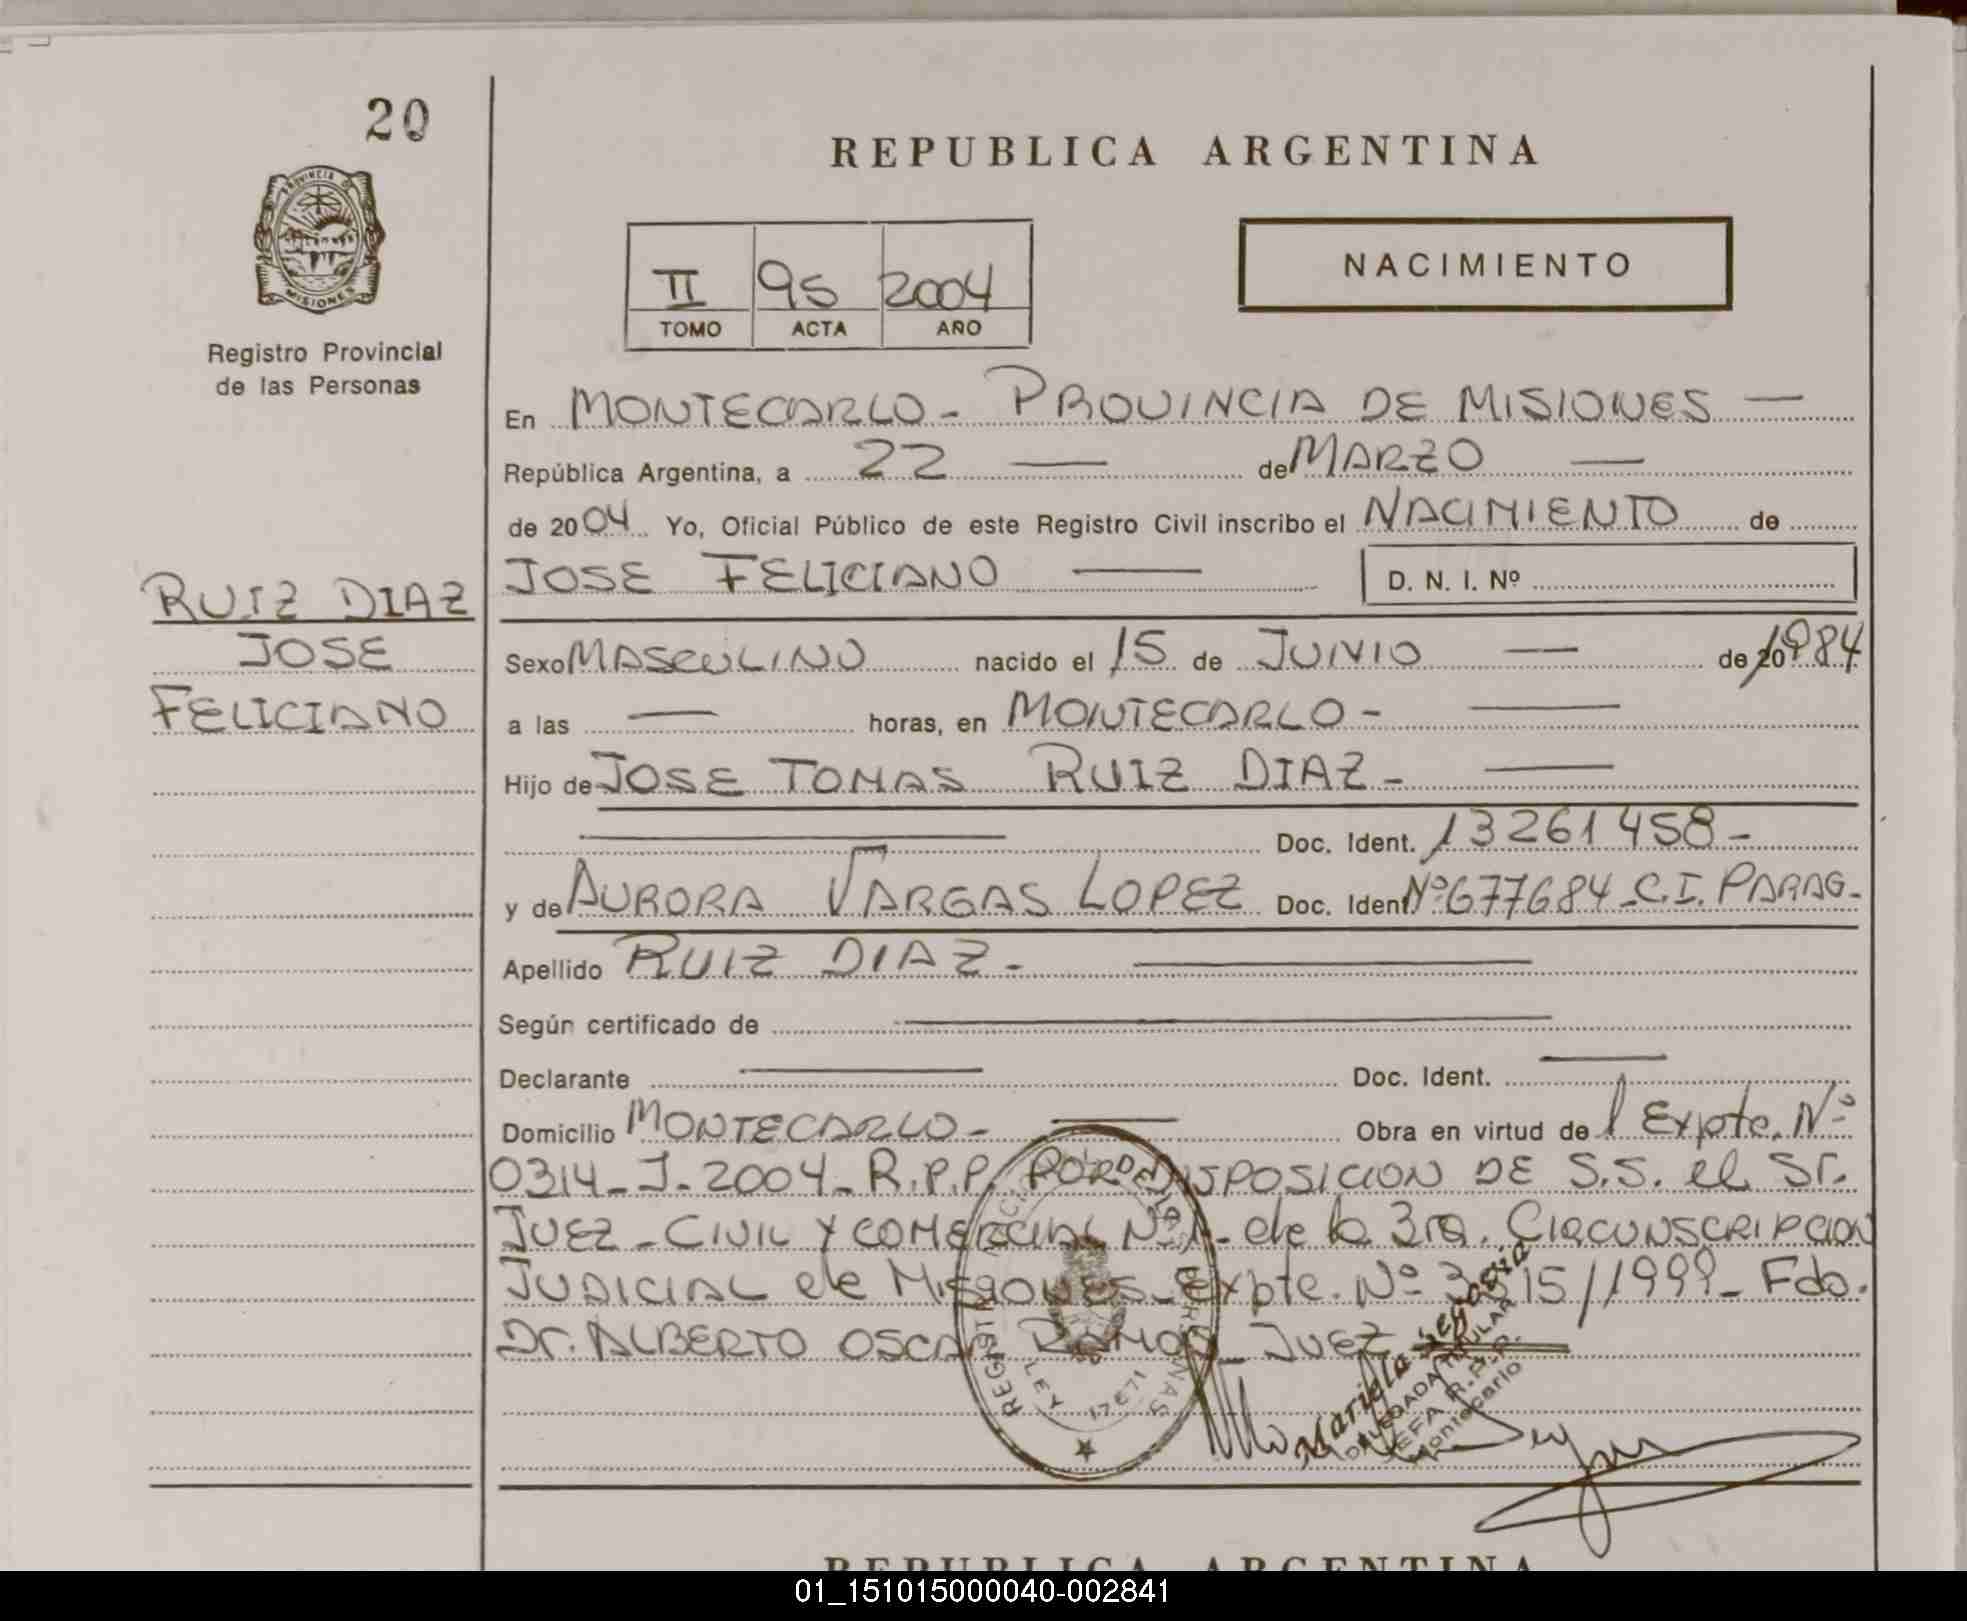 20
REPUBLICA ARGENTINA
PROVINCIA DE
MISIONES
Registro Provincial
de las Personas
II 95 2004
TOMO ACTA AÑO
NACIMIENTO
En MONTECARLO - PROVINCIA DE MISIONES —
República Argentina, a 22 — de MARZO —
de 2004 Yo, Oficial Público de este Registro Civil inscribo el NACIMIENTO de
JOSE FELICIANO — D. N. I. Nº
RUIZ DIAZ
JOSE
FELICIANO
Sexo MASCULINO nacido el 15 de JUNIO — de 20 1984
a las — horas, en MONTECARLO - —
Hijo de JOSE TOMAS RUIZ DIAZ - —
— Doc. Ident. 13261458 -
y de AURORA VARGAS LOPEZ Doc. Ident Nº 677684 - C.I. PARAG -
Apellido RUIZ DIAZ - —
Según certificado de —
Declarante — Doc. Ident. —
Domicilio MONTECARLO - — Obra en virtud de l Expte. Nº
0314 - J - 2004 - R.P.P. POR DISPOSICION DE S.S. el Sr.
JUEZ - CIVIL Y COMERCIAL Nº 1 - de la 3ra. CIRCUNSCRIPCION
JUDICIAL de MISIONES - Expte. Nº 15/1999 - Fdo.
Dr. ALBERTO OSCAR RAMOS - JUEZ
REGISTRO
LEY 17671
Mariela Segovia
DELEGADA TITULAR
JEFA R.P.P.
Montecarlo
REPUBLICA ARGENTINA
01_151015000040-002841